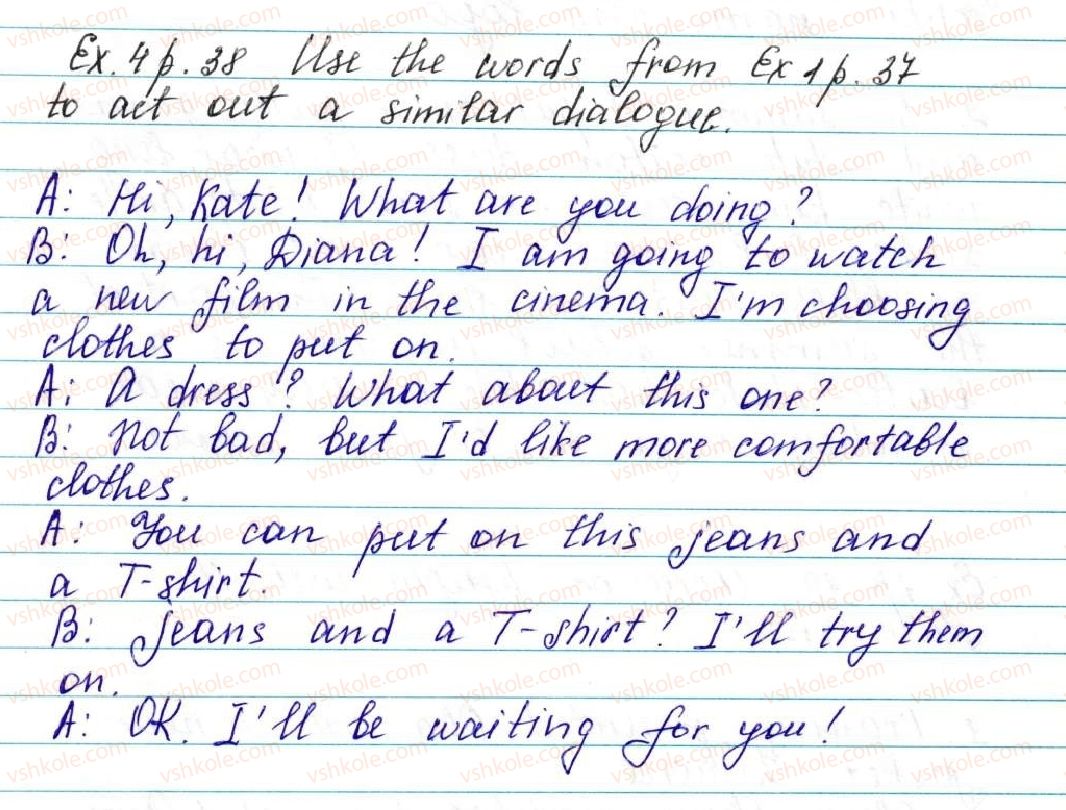 Ex. 4 p. 38 Use the words from Ex 1 p. 37
to act out a similar dialogue.
A: Hi, Kate! What are you doing?
B: Oh, hi, Diana! I am going to watch
a new film in the cinema. I'm choosing
clothes to put on.
A: A dress? What about this one?
B: Not bad, but I'd like more comfortable
clothes.
A: You can put on this jeans and
a T-shirt.
B: Jeans and a T-shirt? I'll try them
on.
A: OK. I'll be waiting for you!